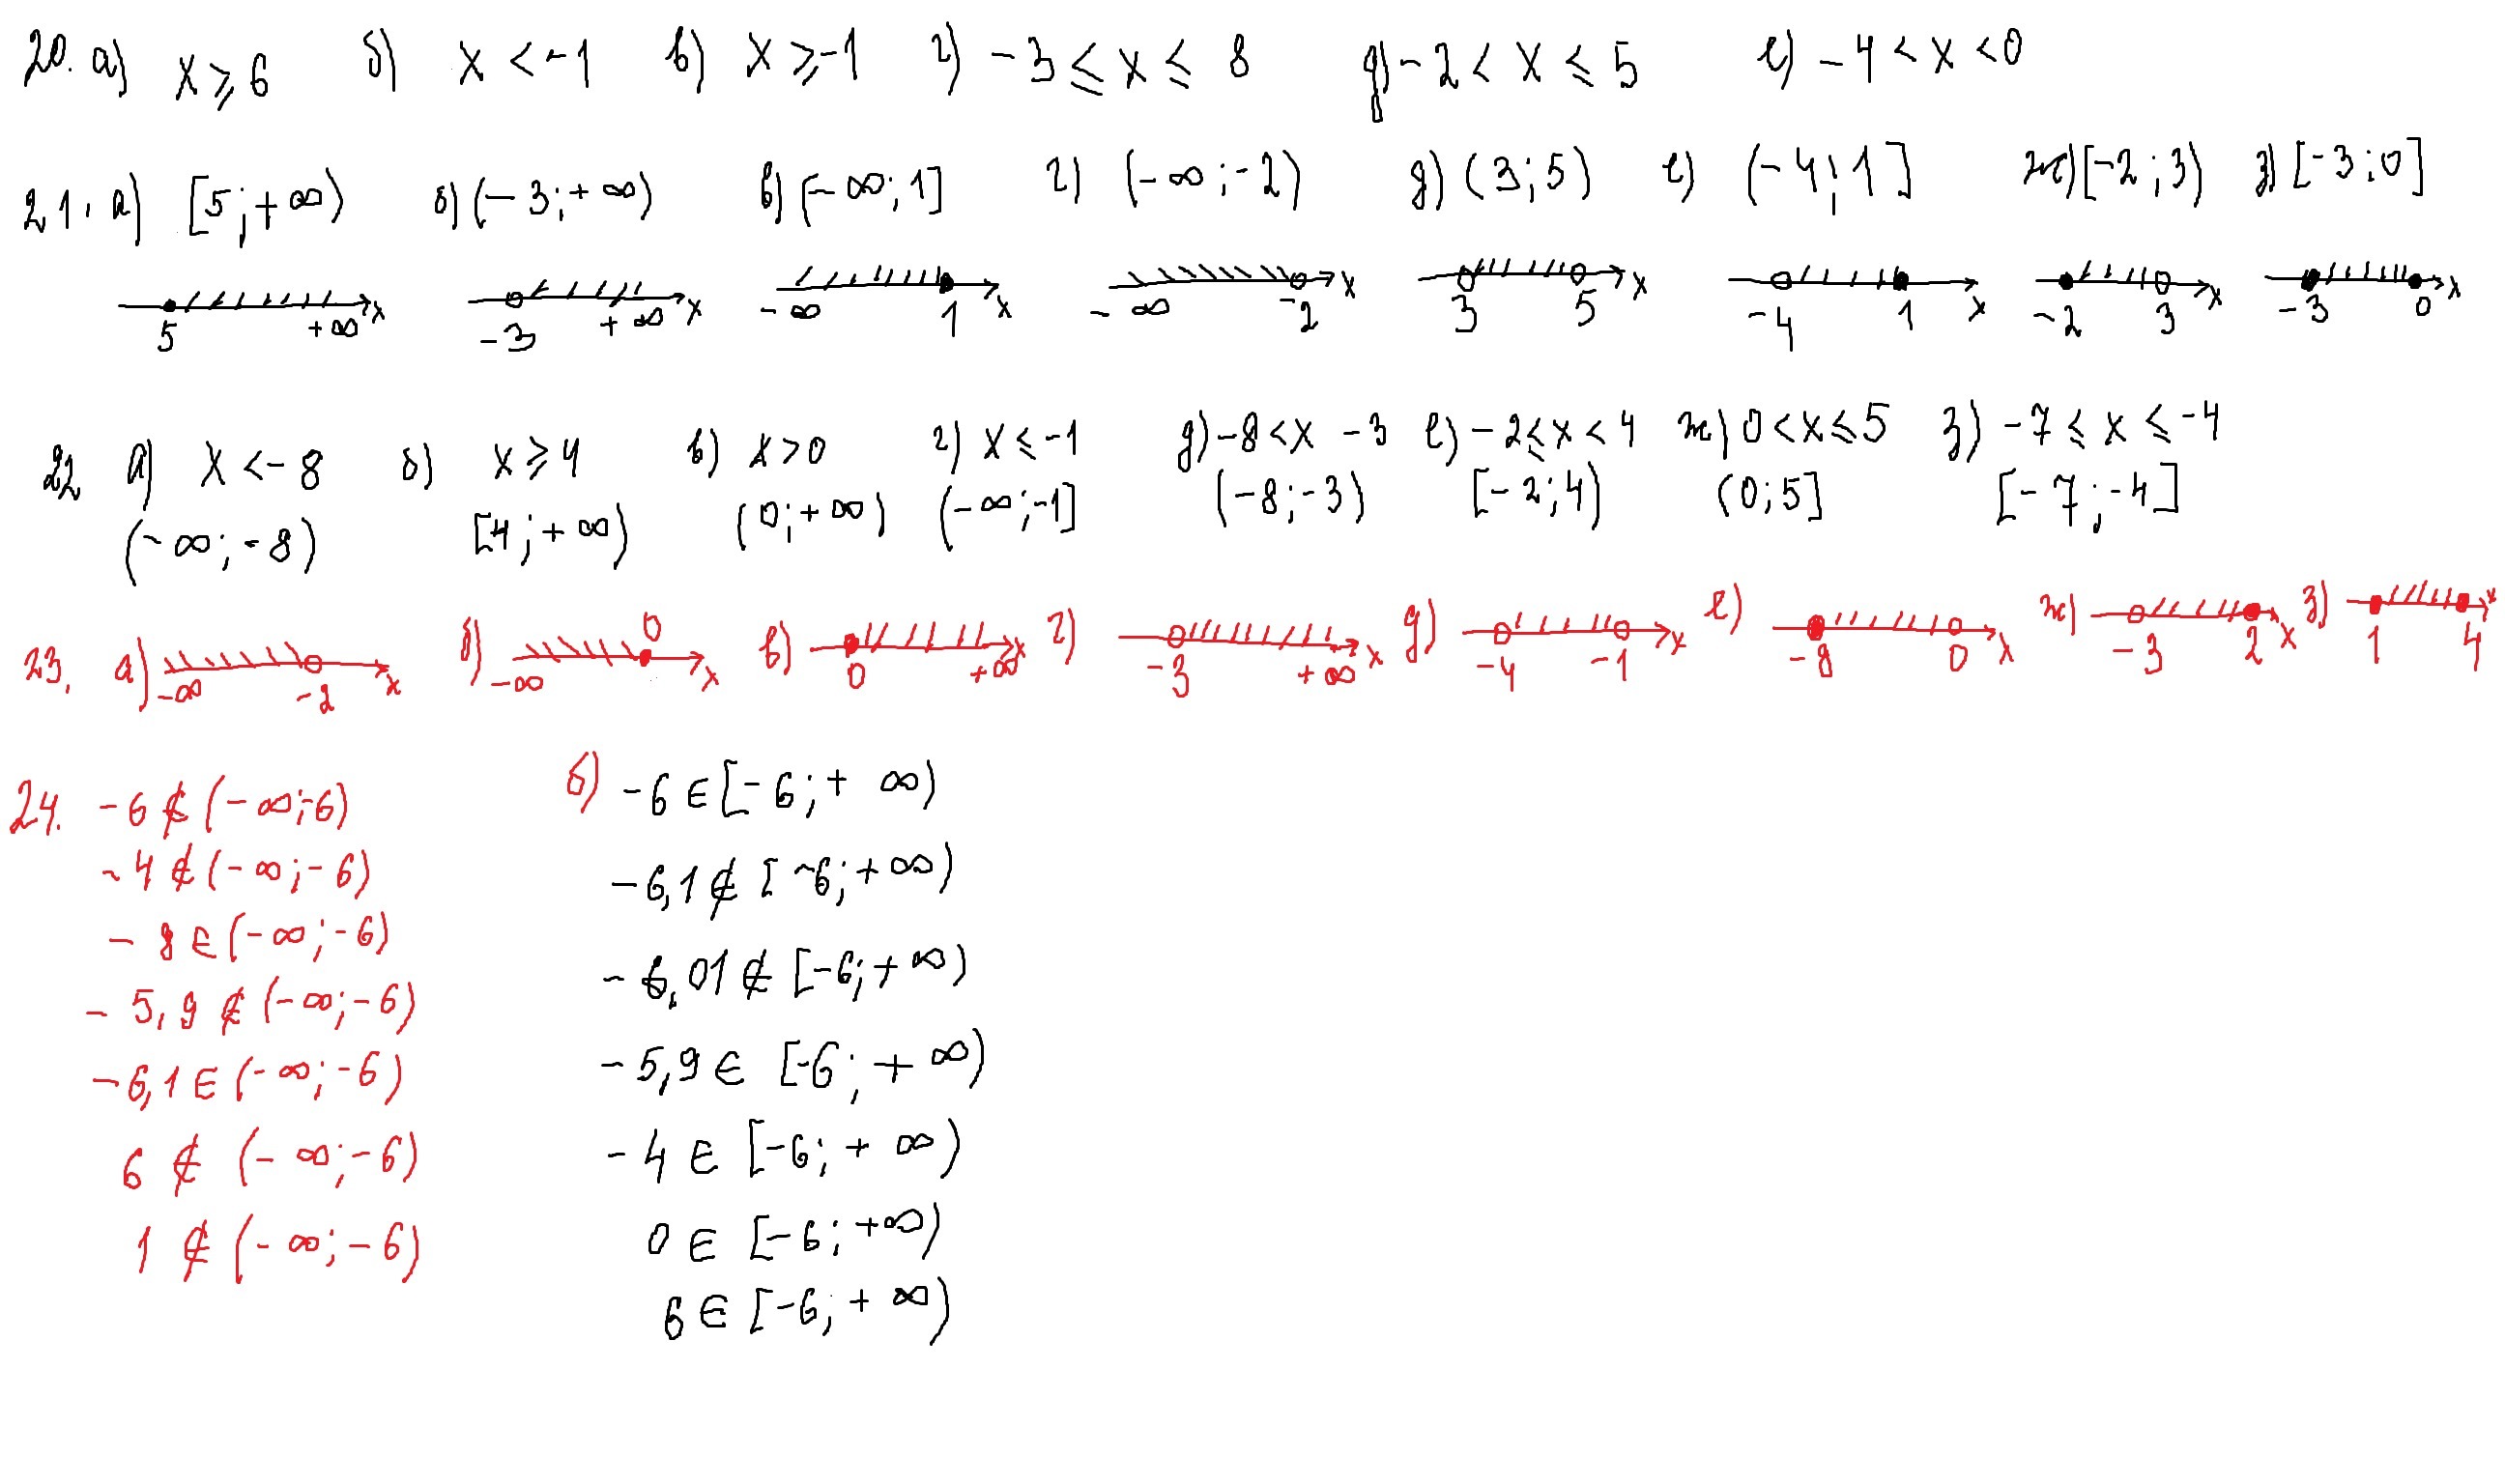 20. а) x ⩾ 6 б) x < -1 в) x ⩾ -1 г) -3 ⩽ x ⩽ 8 д) -2 < x ⩽ 5 е) -4 < x < 0
21. а) [5; +∞) б) (-3; +∞) в) (-∞; 1] г) (-∞; -2) д) (3; 5) е) (-4; 1] ж) [-2; 3) з) [-3; 0]
5 +∞ x -3 +∞ x -∞ 1 x -∞ -2 x 3 5 x -4 1 x -2 3 x -3 0 x
22 а) x < -8 б) x ⩾ 4 в) x > 0 г) x ⩽ -1 д) -8 < x -3 е) -2 ⩽ x < 4 ж) 0 < x ⩽ 5 з) -7 ⩽ x ⩽ -4
(-∞; -8) [4; +∞) (0; +∞) (-∞; -1] (-8; -3) [-2; 4) (0; 5] [-7; -4]
23. а) -∞ -2 x б) -∞ 0 x в) 0 +∞ x г) -3 +∞ x д) -4 -1 x е) -8 0 x ж) -3 2 x з) 1 4 x
24. -6 ∉ (-∞; -6)
-4 ∉ (-∞; -6)
-8 ∈ (-∞; -6)
-5,9 ∉ (-∞; -6)
-6,1 ∈ (-∞; -6)
6 ∉ (-∞; -6)
1 ∉ (-∞; -6)
б) -6 ∈ [-6; +∞)
-6,1 ∉ [-6; +∞)
-6,01 ∉ [-6; +∞)
-5,9 ∈ [-6; +∞)
-4 ∈ [-6; +∞)
0 ∈ [-6; +∞)
6 ∈ [-6; +∞)